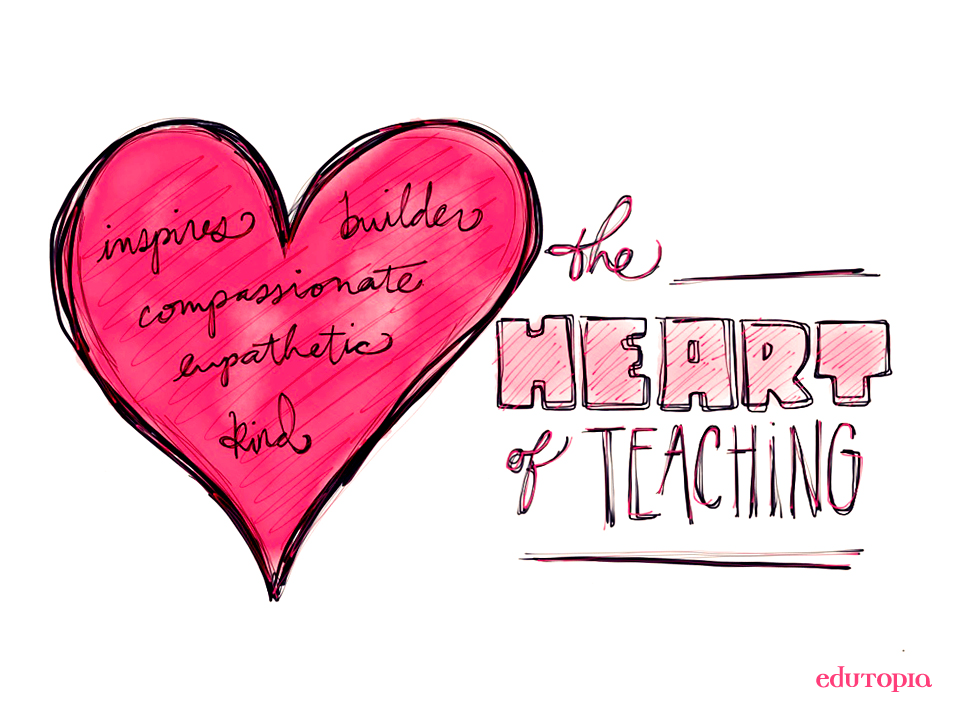 inspires builder
compassionate
empathetic
kind
the
HEART
of TEACHiNG
edutopia